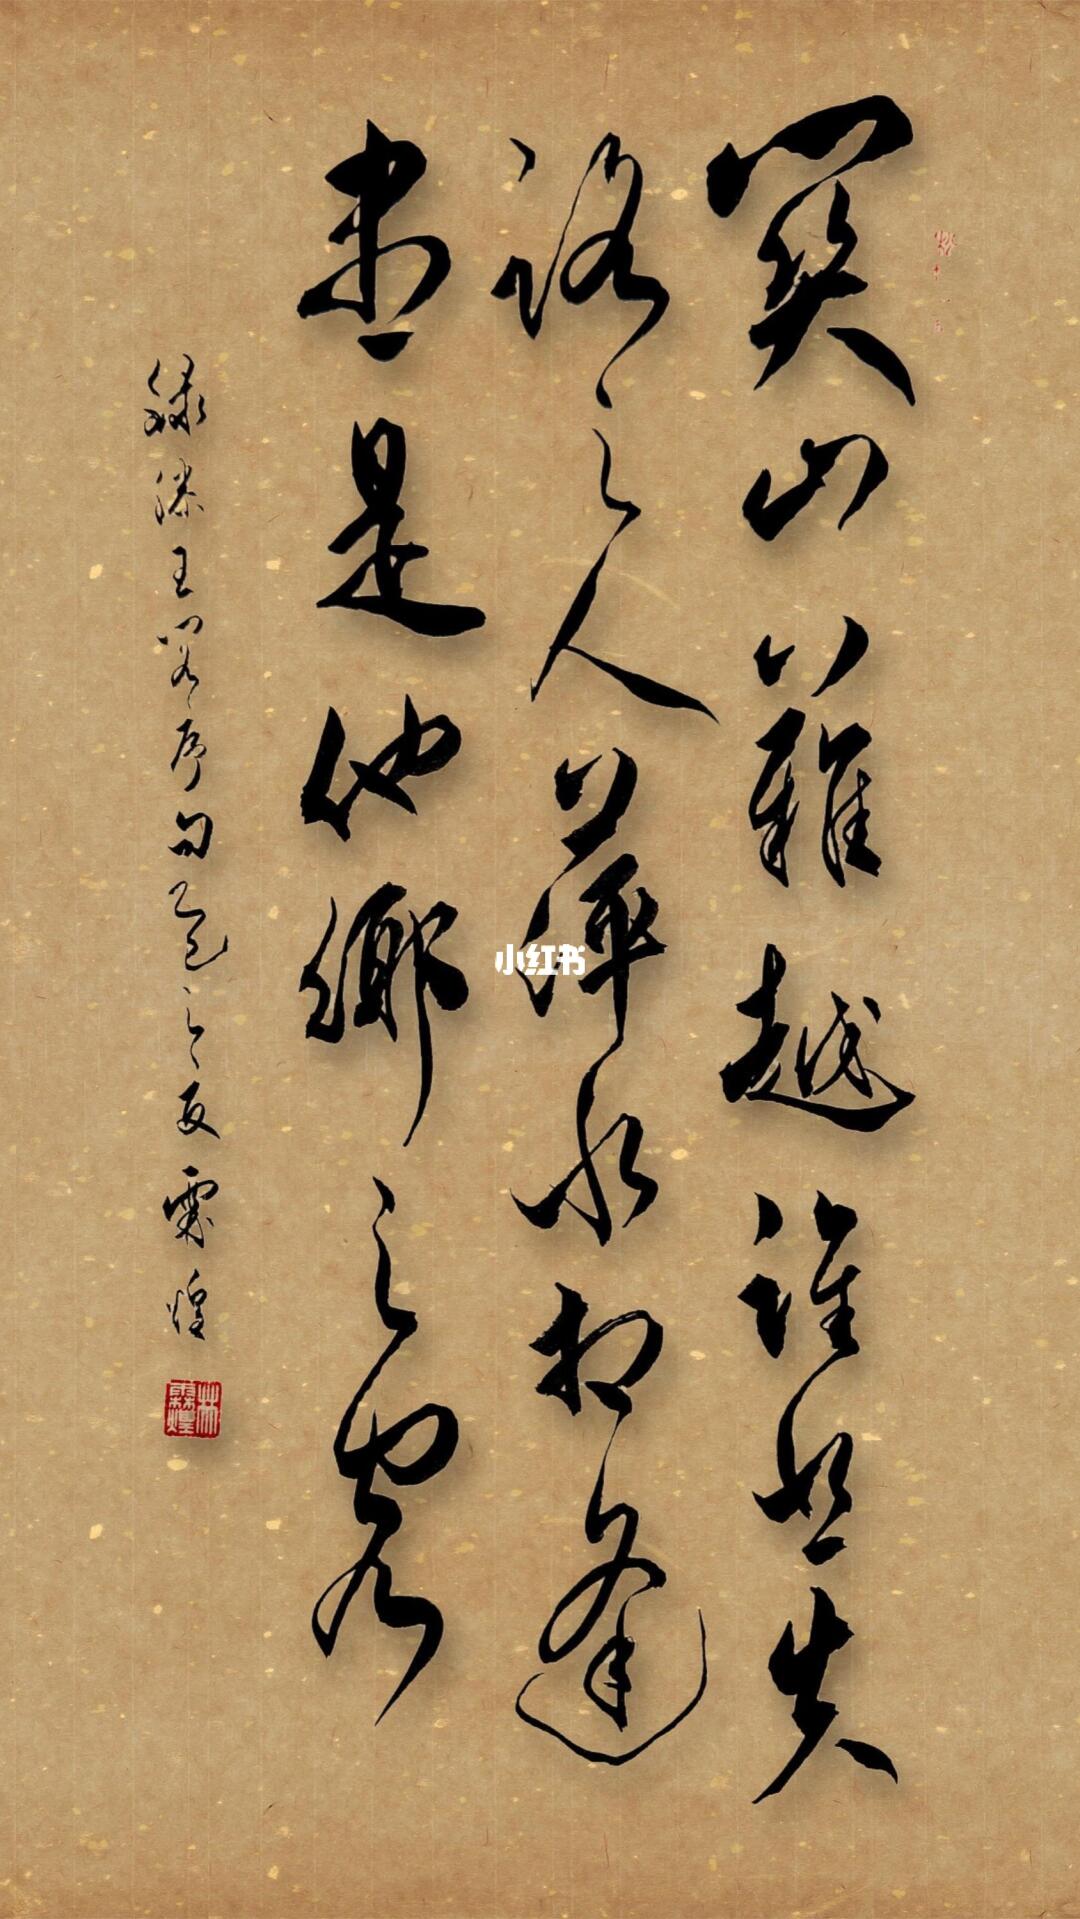 關山難越誰悲失
路之人萍水相逢
盡是他鄉之客
錄滕王閣序句 之 霖煌
林霖煌
小红书